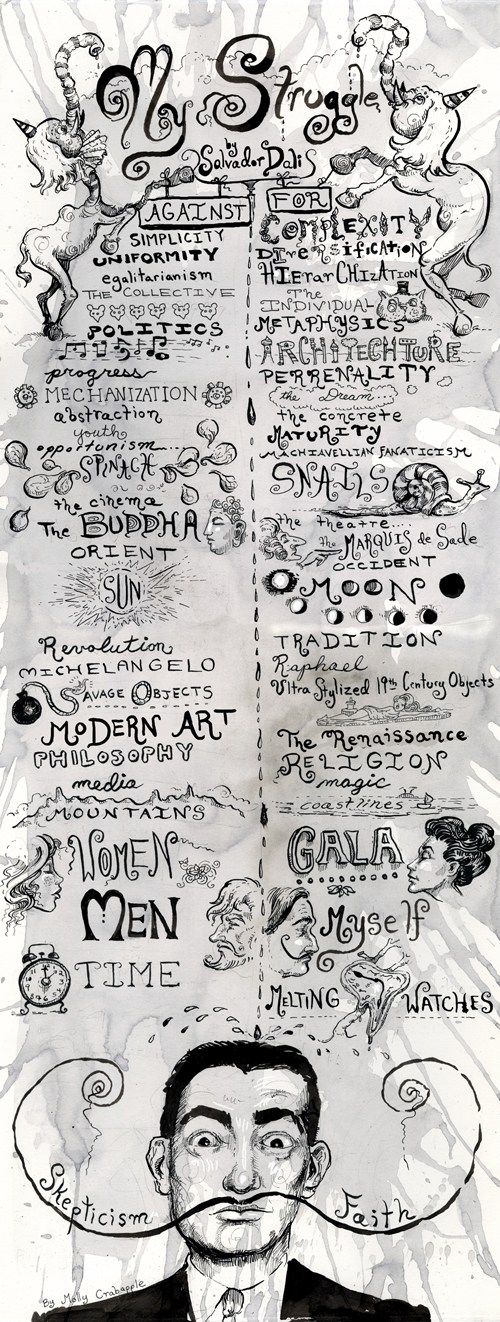 My Struggle
by
Salvador Dali
AGAINST
FOR
SIMPLICITY
COMPLEXITY
UNIFORMITY
DIVERSIFICATION
egalitarianism
HIErarCHIZATION
THE COLLECTIVE
The
INDIVIDUAL
POLITICS
METAPHYSICS
ARCHITECHTURE
progress
PERRENALITY
MECHANIZATION
the Dream
abstraction
the concrete
youth
MATURITY
opportunism
MACHIAVELLIAN FANATICISM
SPINACH
SNAILS
the cinema
the theatre....
The BUDDHA
the MARQUIS de Sade
ORIENT
OCCIDENT
SUN
MOON
Revolution
TRADITION
MICHELANGELO
Raphael
SAVAGE OBJECTS
Ultra Stylized 19th Century Objects
MODERN ART
The Renaissance
PHILOSOPHY
RELIGION
media
magic
MOUNTAINS
coastlines
WOMEN
GALA
MEN
Myself
TIME
MELTING WATCHES
Skepticism
Faith
By Molly Crabapple